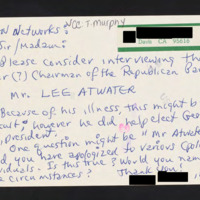 N Networks: NCC T. Murphy
Dair CA 95616
Sir/Madam:
Please consider interviewing the
r (?) Chairman of the Republican Par
Mr. LEE ATWATER
Because of his illness, this might b
cast, however he did help elect Geo
President.
One question might be "Mr Atwate
d, you have apologized to various (poli
viduals. Is this true? Would you nam
e circumstances? Thank you!